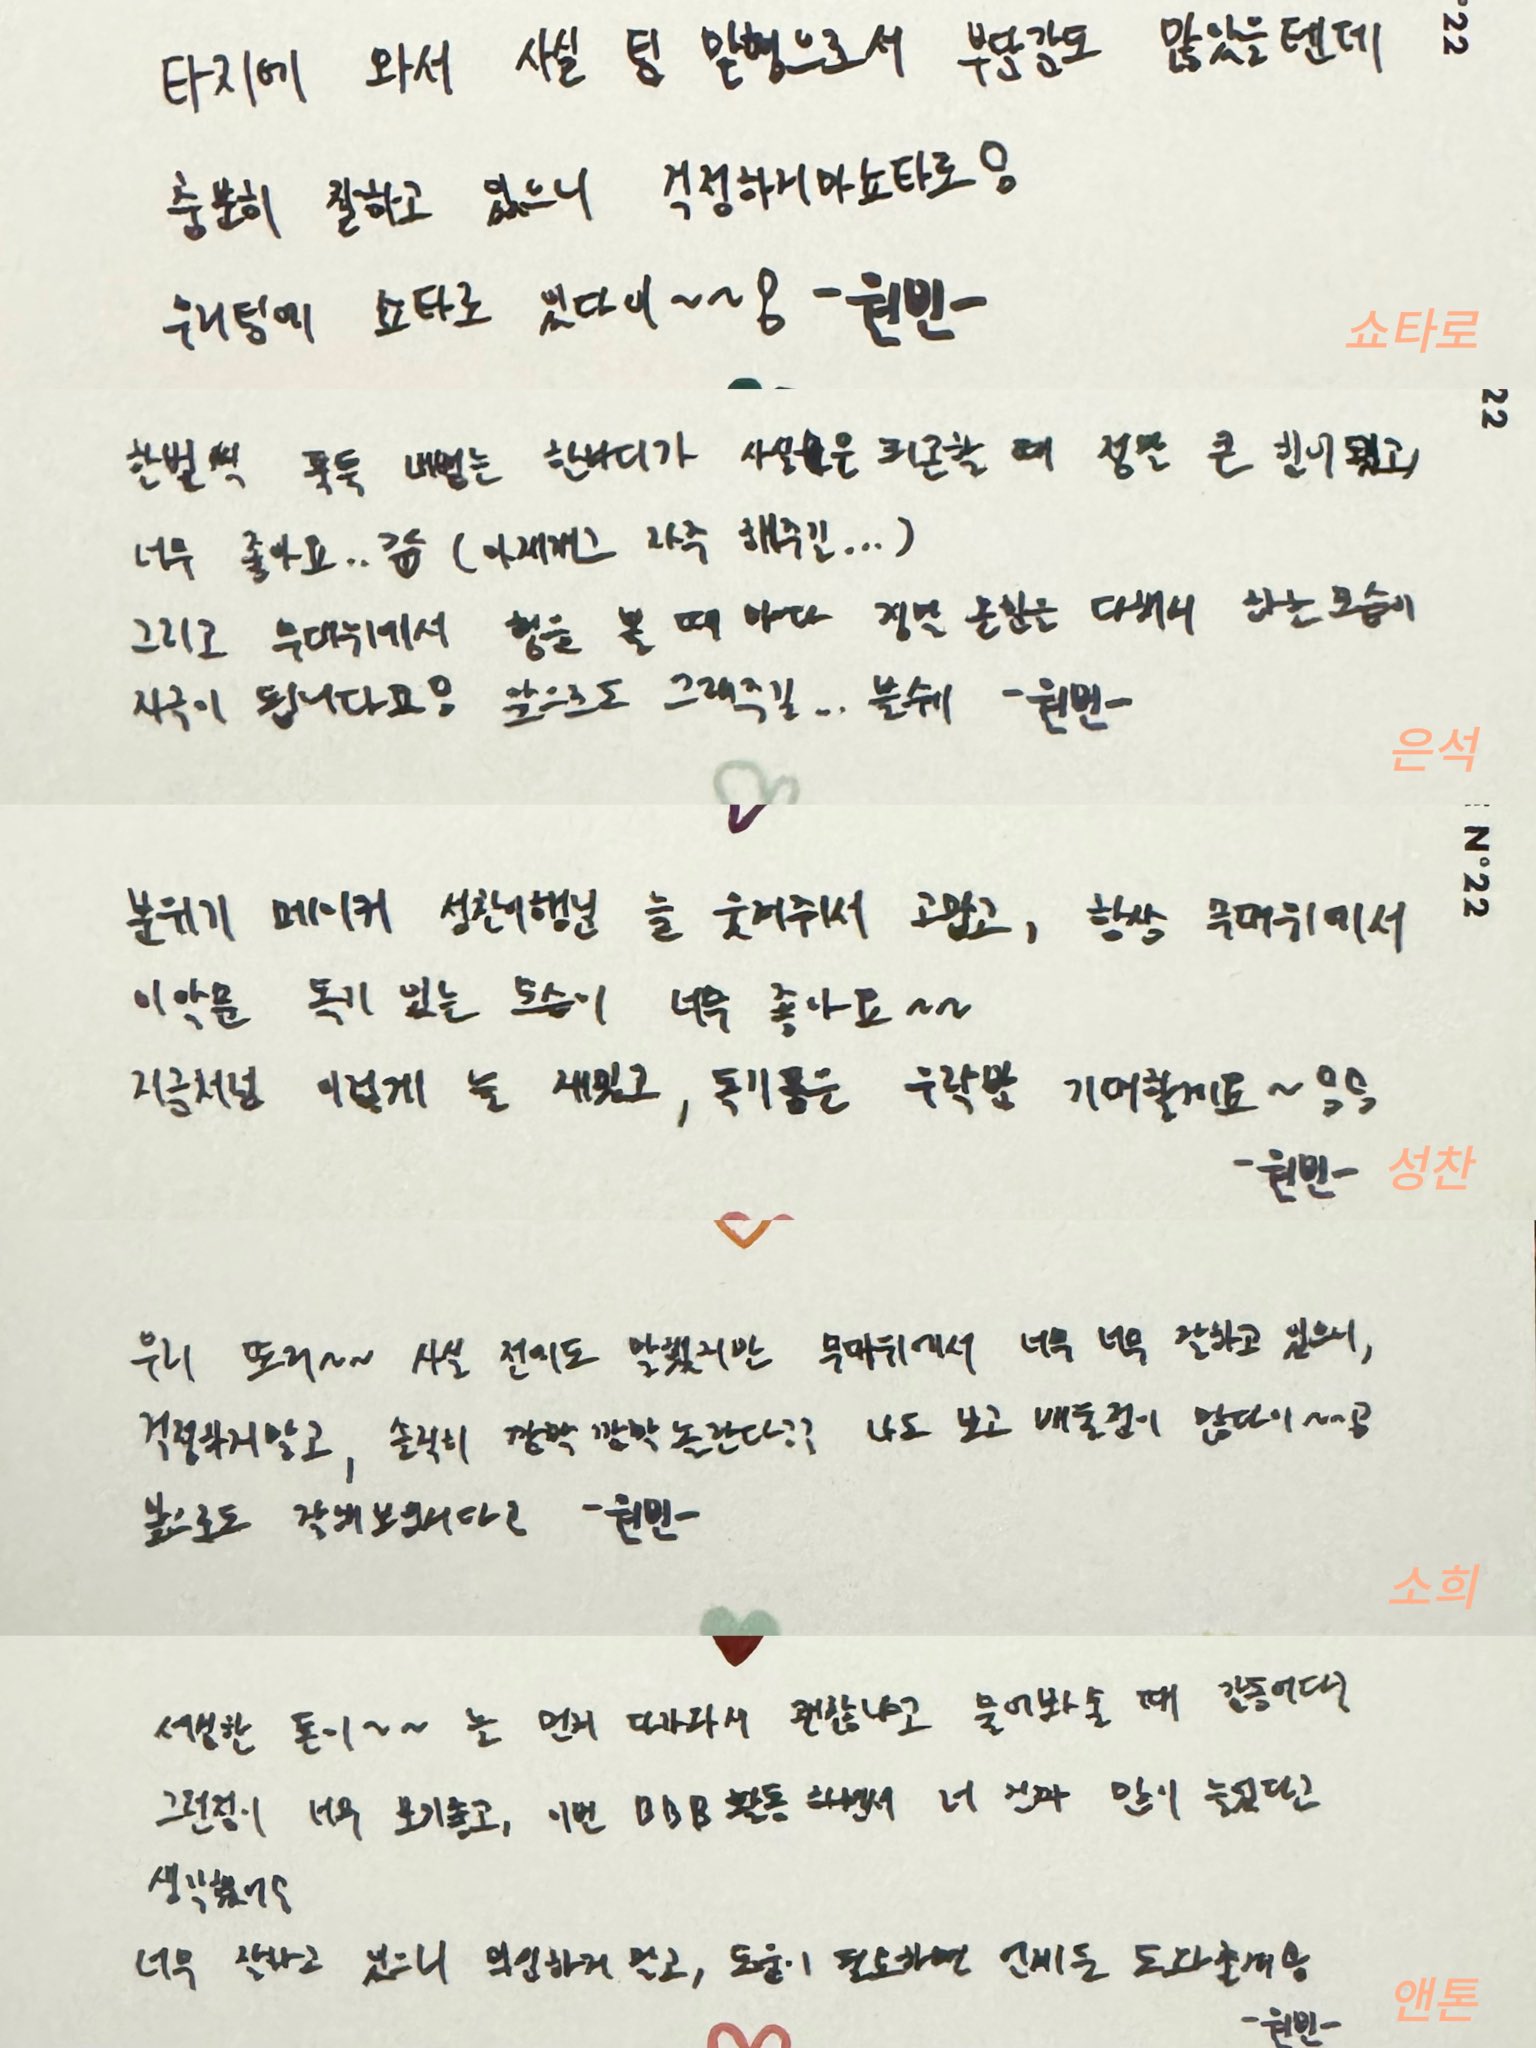 °22
타지에 와서 사실 팀 맏형으로서 부담감도 많았을텐데
충분히 잘하고 있으니 걱정하지마쇼타로
우리팀에 쇼타로 있다이~~ -원빈-
쇼타로
22
한번씩 툭툭 내뱉는 한마디가 사실 은 피곤할 때 정말 큰 힘이 됐고,
너무 좋아요.. (아재개그 자주 해주길...)
그리고 무대위에서 형을 볼 때 마다 정말 본인은 다해서 하는 모습이
자극이 됩니다요 앞으로도 그래주길... 불쉐 -원빈-
은석
N°22
분위기 메이커 성찬이행님 늘 웃겨줘서 고맙고, 항상 무대위에서
이악문 독기 있는 모습이 너무 좋아요~~
지금처럼 이렇게 늘 재밌고, 독기품은 우락밤 기대할게요~
-원빈-
성찬
우리 또리~~ 사실 전에도 말했지만 무대위에서 너무 너무 잘하고 있으니,
걱정하지말고, 솔직히 깜짝깜짝 놀란다?? 나도 보고 배울점이 많다이~~
앞으로도 잘해보입시다 -원빈-
소희
서생한 톤이~~ 늘 먼저 다가와서 괜찮냐고 물어봐줄 때 감동이다
그런점이 너무 보기좋고, 이번 BBB 활동 하면서 너 진짜 많이 늘었다고
생각했어
너무 잘하고 있으니 의심하지 말고, 도움이 필요하면 언제든 도와줄게
-원빈-
앤톤